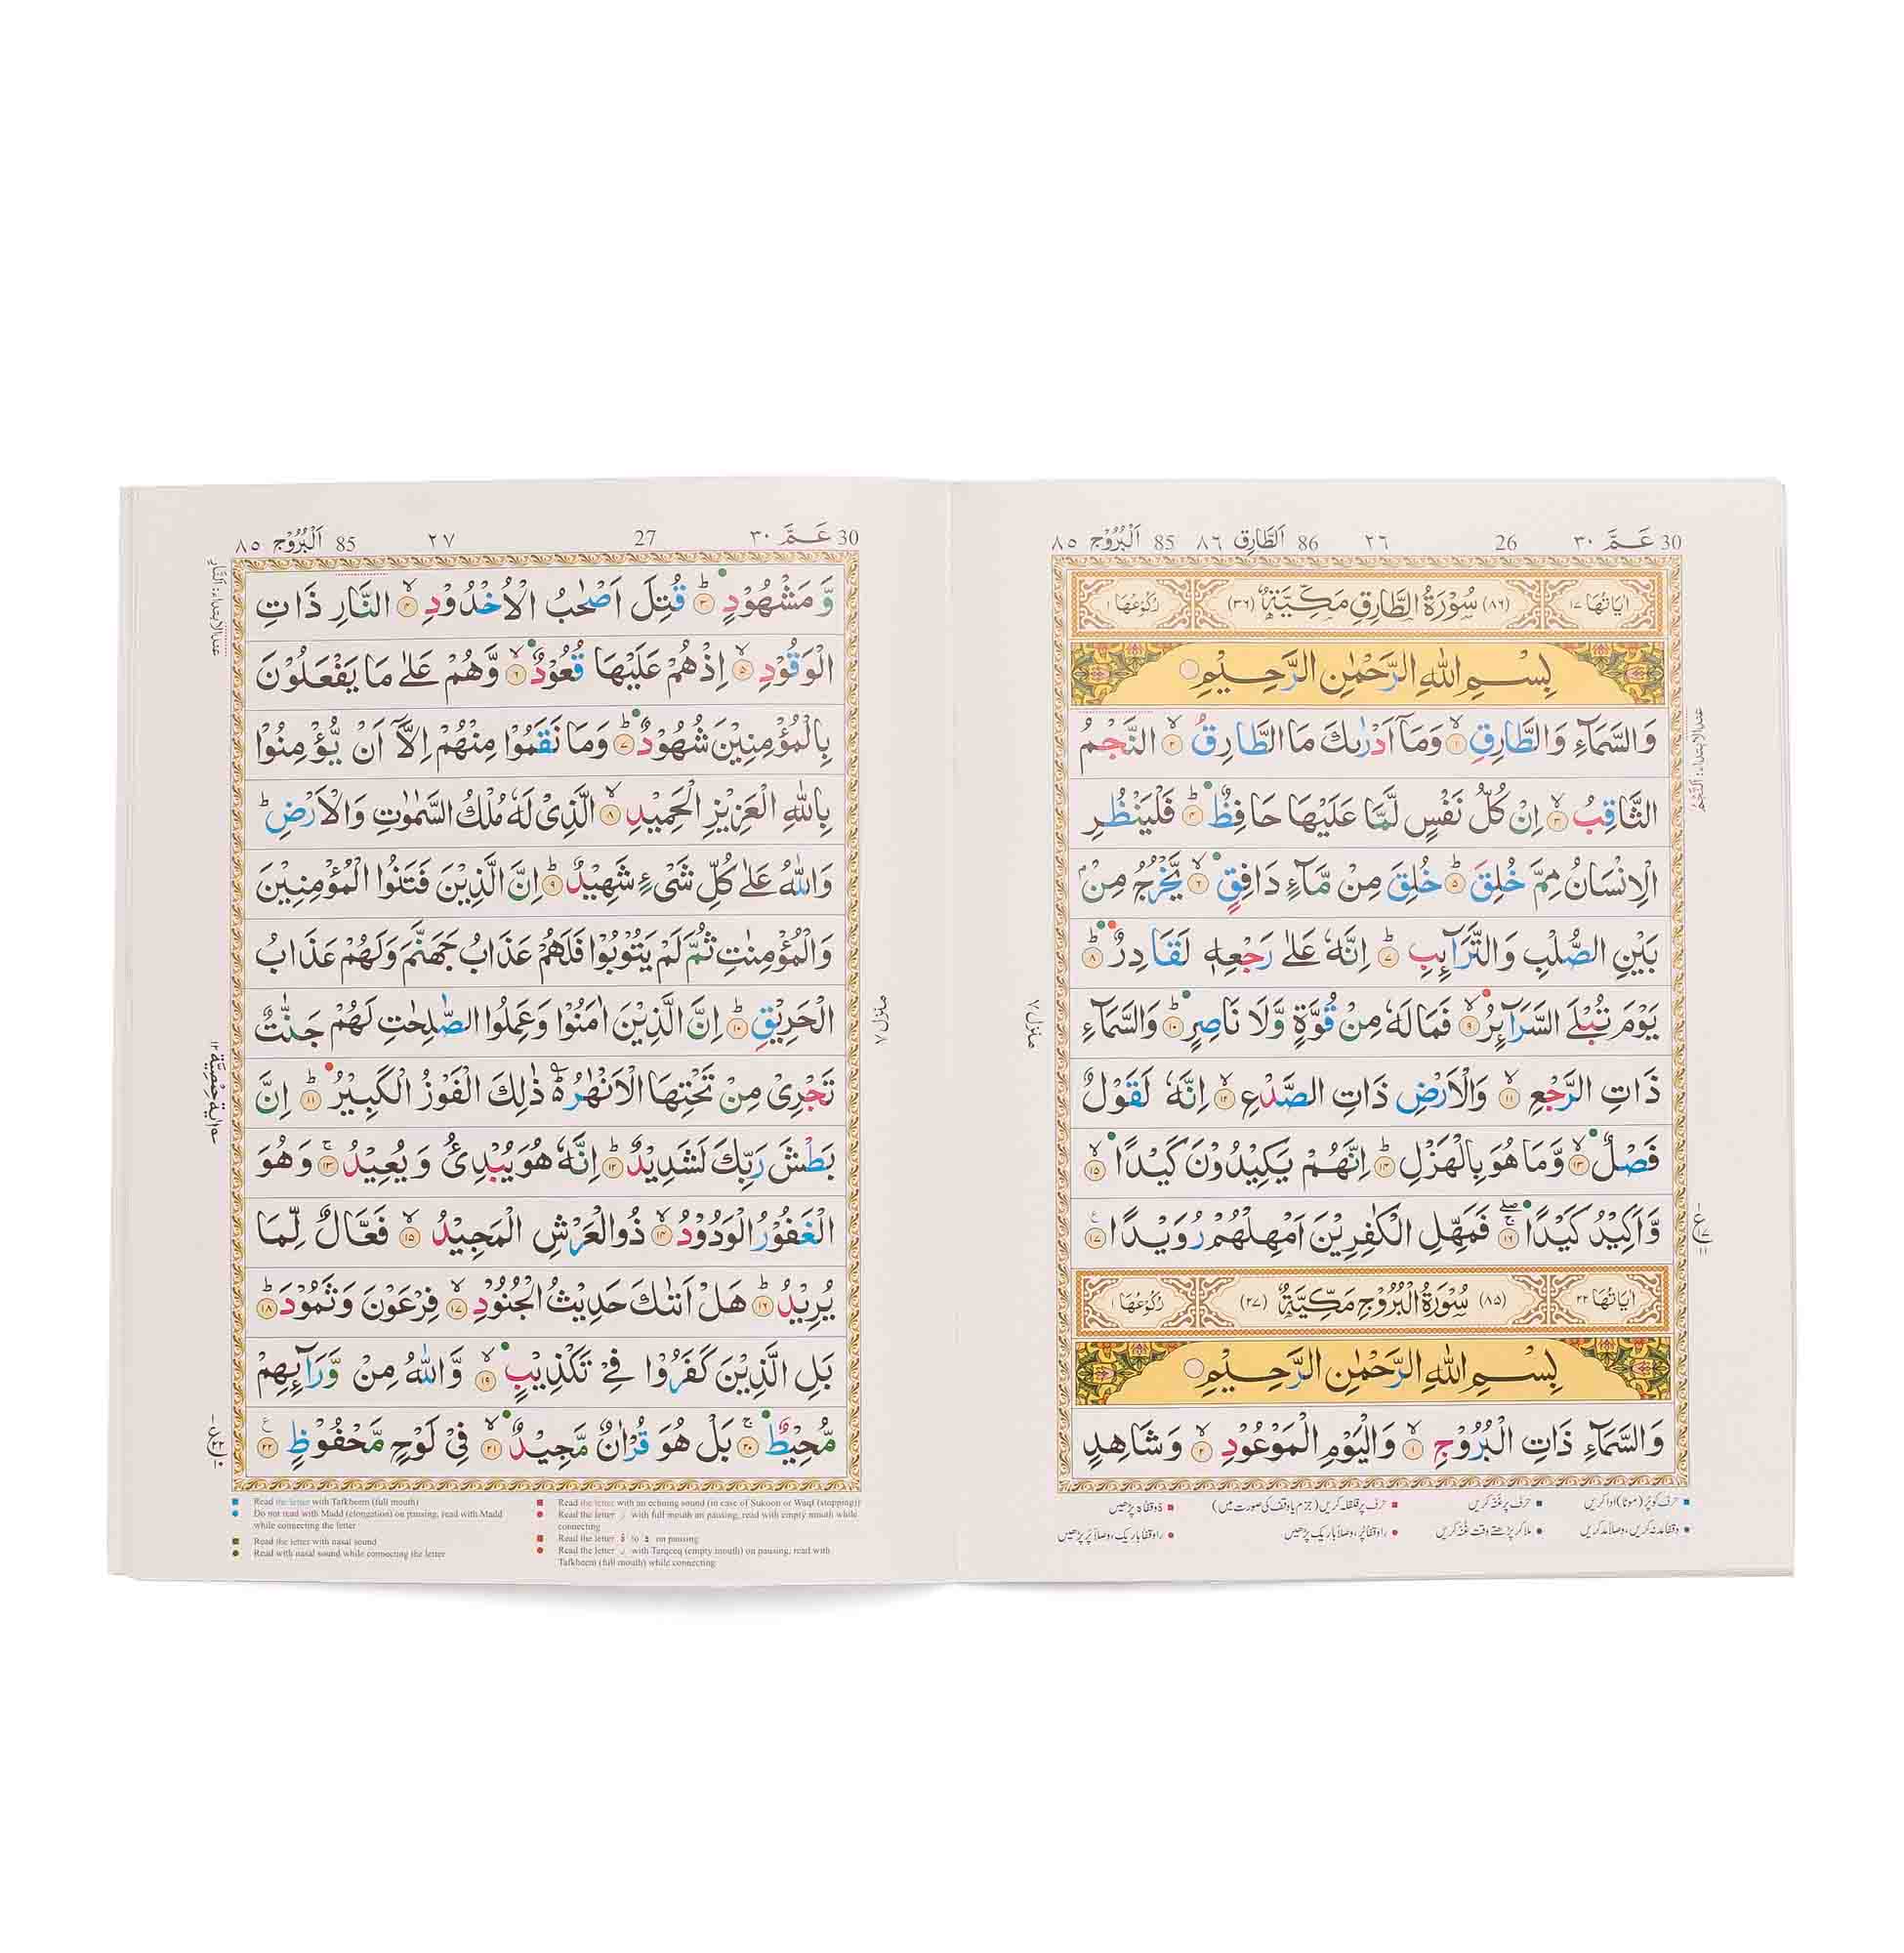 30 عَمَّ ٣٠ 26 ٢٦ 86 اَلطَّارِق ٨٦ 85 اَلْبُرُوْج ٨٥
اٰيَاتُهَا ١٧ (٨٦) سُوْرَةُ الطَّارِقِ مَكِّيَّةٌ (٣٦) رُكُوْعُهَا ١
بِسْمِ اللّٰهِ الرَّحْمٰنِ الرَّحِيْمِ
وَالسَّمَآءِ وَالطَّارِقِ ۙ‏﴿۱﴾ وَمَاۤ اَدْرٰىكَ مَا الطَّارِقُ ۙ‏﴿۲﴾ النَّجْمُ
الثَّاقِبُ ۙ‏﴿۳﴾ اِنْ كُلُّ نَفْسٍ لَّمَّا عَلَيْهَا حَافِظٌ ؕ‏﴿۴﴾ فَلْيَنْظُرِ
الْاِنْسَانُ مِمَّ خُلِقَ ؕ‏﴿۵﴾ خُلِقَ مِنْ مَّآءٍ دَافِقٍ ۙ‏﴿۶﴾ يَّخْرُجُ مِنْۢ
بَيْنِ الصُّلْبِ وَالتَّرَآئِبِ ؕ‏﴿۷﴾ اِنَّهٗ عَلٰى رَجْعِهٖ لَقَادِرٌ ؕ‏﴿۸﴾
يَوْمَ تُبْلَى السَّرَآئِرُ ۙ‏﴿۹﴾ فَمَا لَهٗ مِنْ قُوَّةٍ وَّلَا نَاصِرٍ ؕ‏﴿۱۰﴾ وَالسَّمَآءِ
ذَاتِ الرَّجْعِ ۙ‏﴿۱۱﴾ وَالْاَرْضِ ذَاتِ الصَّدْعِ ۙ‏﴿۱۲﴾ اِنَّهٗ لَقَوْلٌ
فَصْلٌ ۙ‏﴿۱۳﴾ وَّمَا هُوَ بِالْهَزْلِ ؕ‏﴿۱۴﴾ اِنَّهُمْ يَكِيْدُوْنَ كَيْدًا ۙ‏﴿۱۵﴾
وَّاَكِيْدُ كَيْدًا ۚۖ‏﴿۱۶﴾ فَمَهِّلِ الْكٰفِرِيْنَ اَمْهِلْهُمْ رُوَيْدًا ‏﴿۱۷﴾
اٰيَاتُهَا ٢٢ (٨٥) سُوْرَةُ الْبُرُوْجِ مَكِّيَّةٌ (٢٧) رُكُوْعُهَا ١
بِسْمِ اللّٰهِ الرَّحْمٰنِ الرَّحِيْمِ
وَالسَّمَآءِ ذَاتِ الْبُرُوْجِ ۙ‏﴿۱﴾ وَالْيَوْمِ الْمَوْعُوْدِ ۙ‏﴿۲﴾ وَشَاهِدٍ
عند الابتداء: اَلنَّجْمُ
منزل ٧
حرف کو پُر (موٹا) ادا کریں حرف پر غنّہ کریں حرف پر قلقلہ کریں (جزم یا وقف کی صورت میں) ةٌ وقفًا ہ پڑھیں
وقفًا مد نہ کریں، وصلًا مد کریں ملا کر پڑھتے وقت غنّہ کریں را وقفًا پُر، وصلًا باریک پڑھیں را وقفًا باریک، وصلًا پُر پڑھیں
30 عَمَّ ٣٠ 27 ٢٧ 85 اَلْبُرُوْج ٨٥
وَّمَشْهُوْدٍ ؕ‏﴿۳﴾ قُتِلَ اَصْحٰبُ الْاُخْدُوْدِ ۙ‏﴿۴﴾ النَّارِ ذَاتِ
الْوَقُوْدِ ۙ‏﴿۵﴾ اِذْ هُمْ عَلَيْهَا قُعُوْدٌ ۙ‏﴿۶﴾ وَّهُمْ عَلٰى مَا يَفْعَلُوْنَ
بِالْمُؤْمِنِيْنَ شُهُوْدٌ ؕ‏﴿۷﴾ وَمَا نَقَمُوْا مِنْهُمْ اِلَّاۤ اَنْ يُّؤْمِنُوْا
بِاللّٰهِ الْعَزِيْزِ الْحَمِيْدِ ۙ‏﴿۸﴾ الَّذِىْ لَهٗ مُلْكُ السَّمٰوٰتِ وَالْاَرْضِ ؕ
وَاللّٰهُ عَلٰى كُلِّ شَىْءٍ شَهِيْدٌ ؕ‏﴿۹﴾ اِنَّ الَّذِيْنَ فَتَنُوا الْمُؤْمِنِيْنَ
وَالْمُؤْمِنٰتِ ثُمَّ لَمْ يَتُوْبُوْا فَلَهُمْ عَذَابُ جَهَنَّمَ وَلَهُمْ عَذَابُ
الْحَرِيْقِ ؕ‏﴿۱۰﴾ اِنَّ الَّذِيْنَ اٰمَنُوْا وَعَمِلُوا الصّٰلِحٰتِ لَهُمْ جَنّٰتٌ
تَجْرِىْ مِنْ تَحْتِهَا الْاَنْهٰرُ ۬ؕ ذٰلِكَ الْفَوْزُ الْكَبِيْرُ ؕ‏﴿۱۱﴾ اِنَّ
بَطْشَ رَبِّكَ لَشَدِيْدٌ ؕ‏﴿۱۲﴾ اِنَّهٗ هُوَ يُبْدِئُ وَيُعِيْدُ ۚ‏﴿۱۳﴾ وَهُوَ
الْغَفُوْرُ الْوَدُوْدُ ۙ‏﴿۱۴﴾ ذُو الْعَرْشِ الْمَجِيْدُ ۙ‏﴿۱۵﴾ فَعَّالٌ لِّمَا
يُرِيْدُ ؕ‏﴿۱۶﴾ هَلْ اَتٰٮكَ حَدِيْثُ الْجُنُوْدِ ۙ‏﴿۱۷﴾ فِرْعَوْنَ وَثَمُوْدَ ؕ‏﴿۱۸﴾
بَلِ الَّذِيْنَ كَفَرُوْا فِىْ تَكْذِيْبٍ ۙ‏﴿۱۹﴾ وَّاللّٰهُ مِنْ وَّرَآئِهِمْ
مُّحِيْطٌ ۚ‏﴿۲۰﴾ بَلْ هُوَ قُرْاٰنٌ مَّجِيْدٌ ۙ‏﴿۲۱﴾ فِىْ لَوْحٍ مَّحْفُوْظٍ ‏﴿۲۲﴾
عند الابتداء: اَلنَّارِ
منزل ٧
Read the letter with Tafkheem (full mouth)
Do not read with Madd (elongation) on pausing, read with Madd
while connecting the letter
Read the letter with nasal sound
Read with nasal sound while connecting the letter
Read the letter with an echoing sound (in case of Sukoon or Waqf (stopping))
Read the letter ر with full mouth on pausing, read with empty mouth while
connecting
Read the letter ةٌ to ہ on pausing
Read the letter ر with Tarqeeq (empty mouth) on pausing, read with
Tafkheem (full mouth) while connecting